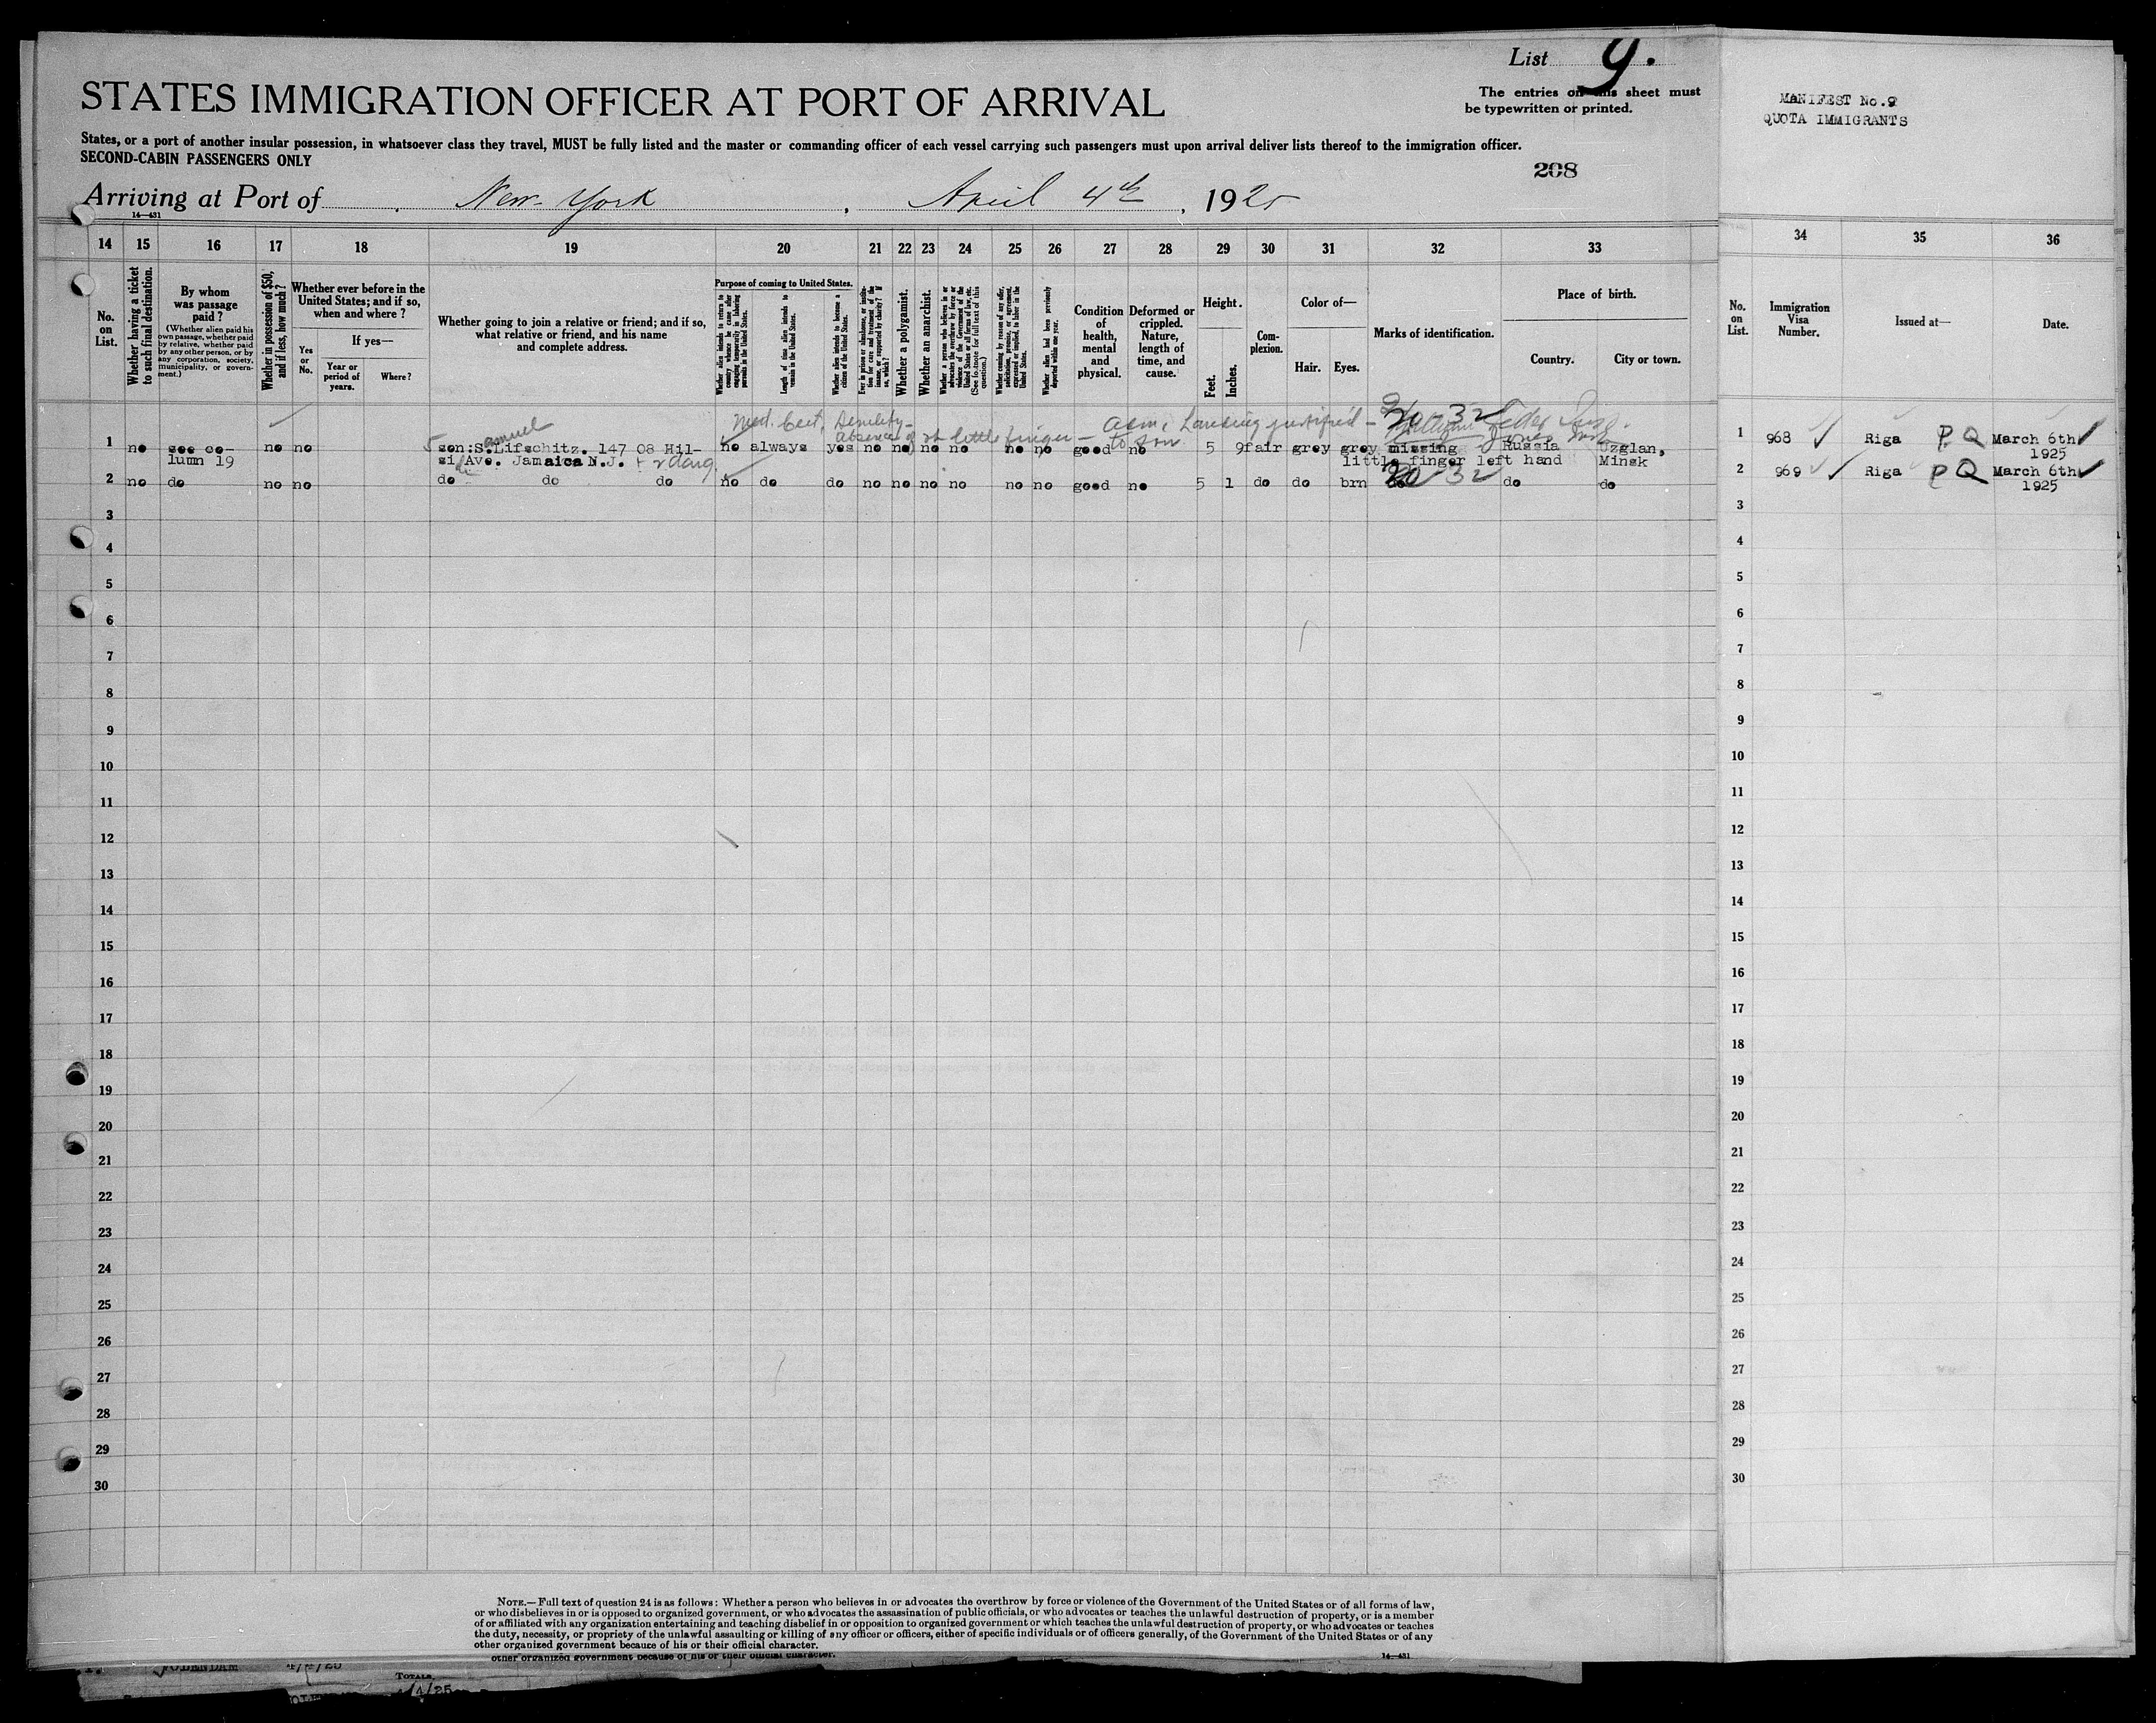 List 9.
STATES IMMIGRATION OFFICER AT PORT OF ARRIVAL
The entries on this sheet must
be typewritten or printed.
MANIFEST No.9
QUOTA IMMIGRANTS
States, or a port of another insular possession, in whatsoever class they travel, MUST be fully listed and the master or commanding officer of each vessel carrying such passengers must upon arrival deliver lists thereof to the immigration officer.
SECOND-CABIN PASSENGERS ONLY
208
Arriving at Port of New York, April 4th, 1925
14—431
14 15 16 17 18 19 20 21 22 23 24 25 26 27 28 29 30 31 32 33 34 35 36
No. on List.
Whether having a ticket to such final destination.
By whom was passage paid?
(Whether alien paid his own passage, whether paid by relative, whether paid by any other person, or by any corporation, society, municipality, or government.)
Whether in possession of $50, and if less, how much?
Whether ever before in the United States; and if so, when and where?
Yes or No.
If yes—
Year or period of years.
Where?
Whether going to join a relative or friend; and if so, what relative or friend, and his name and complete address.
Purpose of coming to United States.
Whether alien intends to return to country whence he came after engaging temporarily in laboring pursuits in the United States.
Length of time alien intends to remain in the United States.
Whether alien intends to become a citizen of the United States.
Ever in prison or almshouse, or institution for care and treatment of the insane, or supported by charity? If so, which?
Whether a polygamist.
Whether an anarchist.
Whether a person who believes in or advocates the overthrow by force or violence of the Government of the United States or all forms of law, etc. (See footnote for full text of this question.)
Whether coming by reason of any offer, solicitation, promise, or agreement, expressed or implied, to labor in the United States.
Whether alien had been previously deported within one year.
Condition of health, mental and physical.
Deformed or crippled. Nature, length of time, and cause.
Height.
Feet.
Inches.
Complexion.
Color of—
Hair.
Eyes.
Marks of identification.
Place of birth.
Country.
City or town.
No. on List.
Immigration Visa Number.
Issued at—
Date.
Med. Cert. Senility-
absence of rt little finger — adm. Landing justified -
to son
1 no see co- no no son:S. Lifschitz. 147 08 Hil- no always yes no no no no no no good no 5 9 fair grey grey missing Russia Uzglan,
amuel
lumn 19 si Ave. Jamaica N.J. little finger left hand Minsk
1 968 Riga P Q March 6th
1925
2 no do no no do do do no do do no no no no no no good no 5 1 do do brn do do
2 969 Riga P Q March 6th
1925
3 3
4 4
5 5
6 6
7 7
8 8
9 9
10 10
11 11
12 12
13 13
14 14
15 15
16 16
17 17
18 18
19 19
20 20
21 21
22 22
23 23
24 24
25 25
26 26
27 27
28 28
29 29
30 30
NOTE.—Full text of question 24 is as follows: Whether a person who believes in or advocates the overthrow by force or violence of the Government of the United States or of all forms of law,
or who disbelieves in or is opposed to organized government, or who advocates the assassination of public officials, or who advocates or teaches the unlawful destruction of property, or is a member
of or affiliated with any organization entertaining and teaching disbelief in or opposition to organized government or which teaches the unlawful destruction of property, or who advocates or teaches
the duty, necessity, or propriety of the unlawful assaulting or killing of any officer or officers, either of specific individuals or of officers generally, of the Government of the United States or of any
other organized government because of his or their official character.
other organized government because of his or their official character.
14—431
VOLENDAM 4/4/25
TOTALS
4/4/25